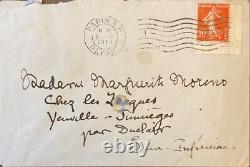 PARIS R.P.
DEPART
Madame Marguerite Moreno
Chez les Zarques
Yainville - Jumièges
par Duclair
Seine-Inférieure